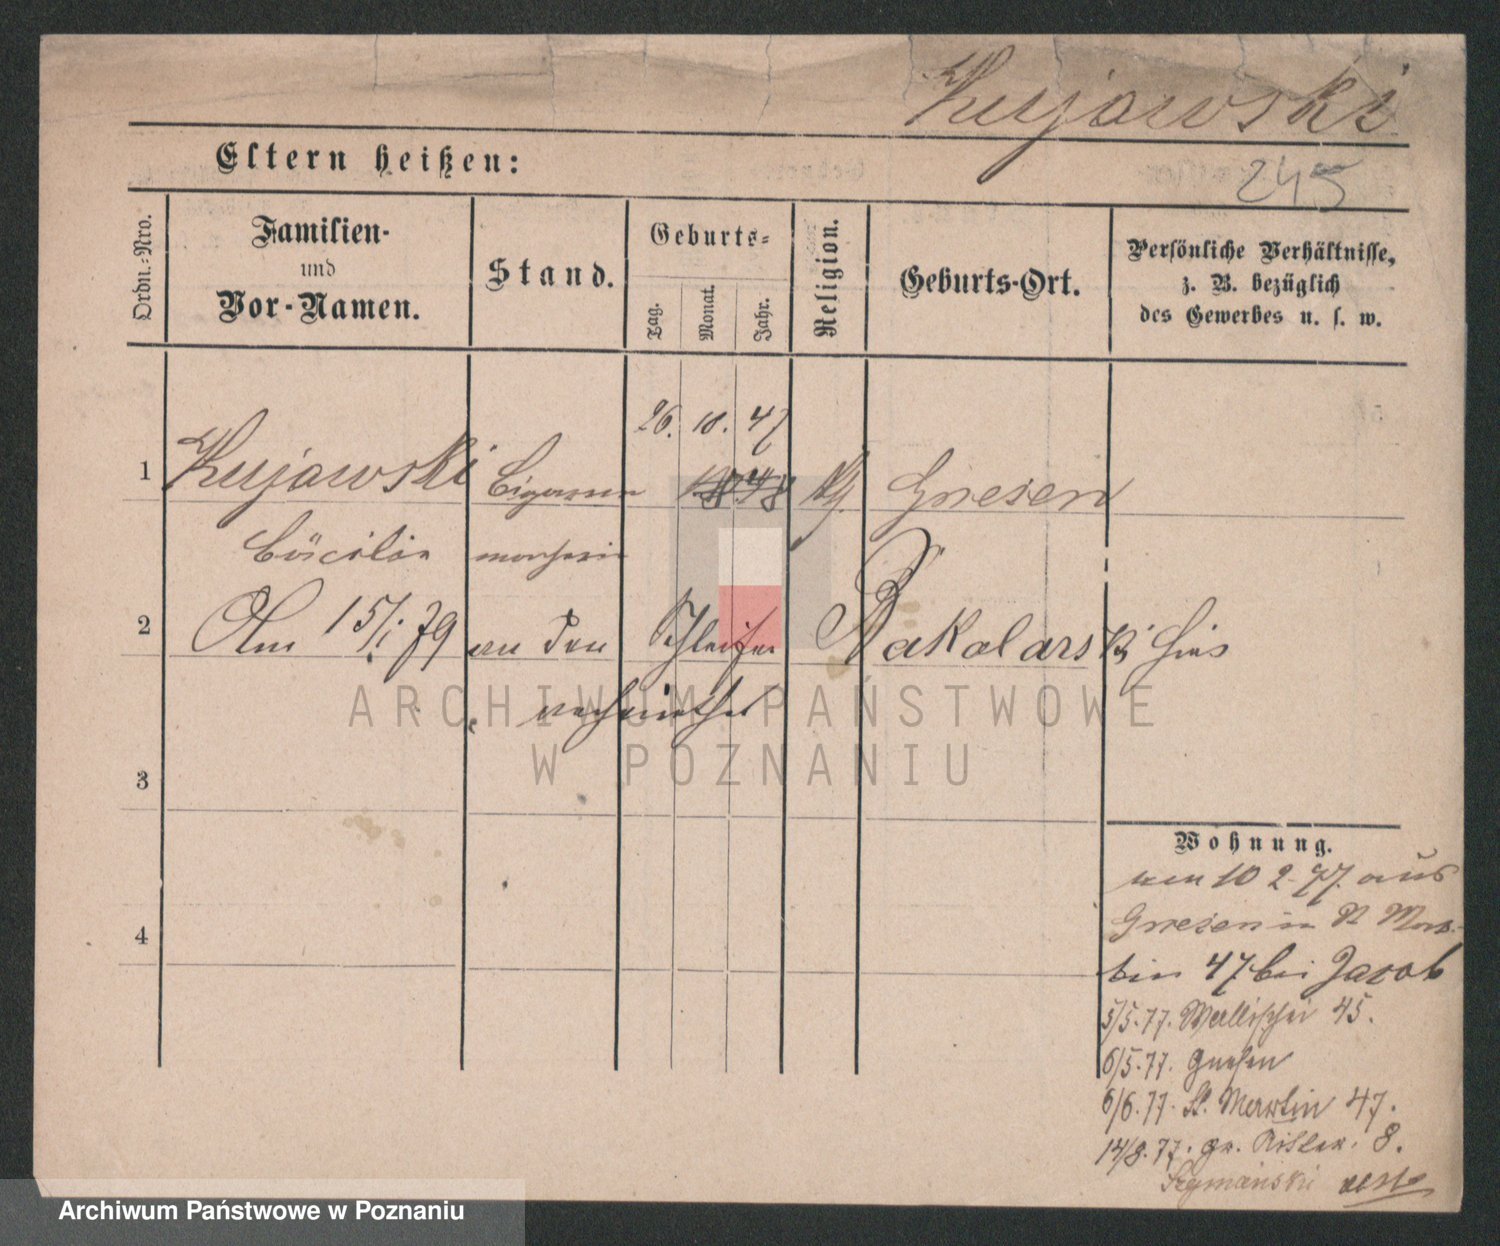 Kujawski
245
Eltern heißen:
Ordn.-Nro.
Familien-
und
Vor-Namen.
Stand.
Geburts-
Tag.
Monat.
Jahr.
Religion.
Geburts-Ort.
Persönliche Verhältnisse,
z. B. bezüglich
des Gewerbes u. s. w.
26. 10. 47
1 Kujawski Cigarren Gnesen
Cäcilie macherin
2 Am 15/1 79 an den Schleifer Bakalarski hies
verheirathet
3
4
ARCHIWUM PAŃSTWOWE
W POZNANIU
Wohnung.
10 2 77. aus
Gnesen in St Mar
tin 47 bei Jacob
5/5.77. Wallischei 45.
6/5.77. Gnesen
6/6.77. St. Martin 47.
14/8.77. gr. Ritter. 8.
Szymański
Archiwum Państwowe w Poznaniu